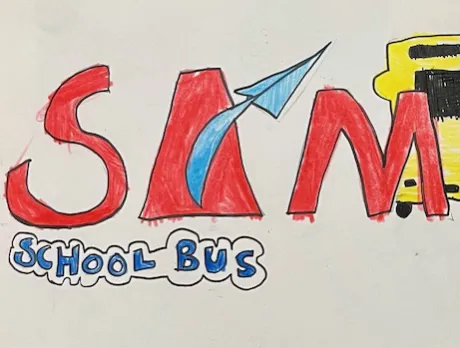 SAM
SCHOOL BUS